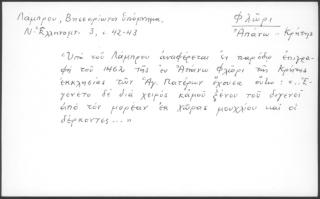 Λαμπρου, Βησσαρίωνος Ὑπόμνημα, Φλῶρι
Ν· Ἑλληνομν. 3, σ. 42-43 Ἀπάνω - Κρήτης
«Ὑπὸ τοῦ Λάμπρου ἀναφέρεται ἡ παροῦσα ἐπιγρα-
φὴ τοῦ 1462 τῆς ἐν Ἀπάνω Φλῶρι τῆς Κρήτης
ἐκκλησίας τῶν Ἁγ. Πατέρων ἔχουσα οὕτω: «..Ἐ-
γένετο δὲ διὰ χειρὸς κἀμοῦ ξένου τοῦ διγενοῖ
ἀπὸ τὸν μορέαν ἐκ χώρας μουχλίου καὶ οἱ
δέρκοντες...»